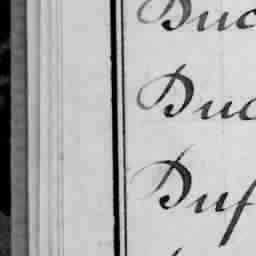 Duc
Duc
Duf